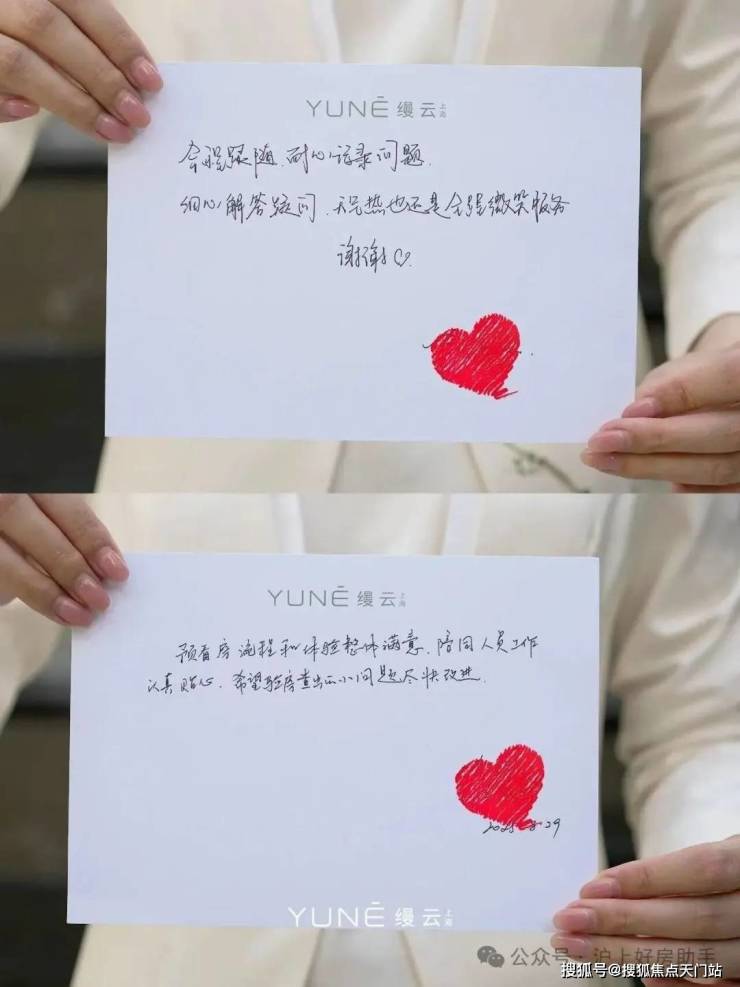 YUNĒ 缦云上海
全程跟随、耐心记录问题、
细心解答疑问、天气热也还是全程微笑服务
谢谢♡
YUNĒ 缦云上海
预看房流程和体验整体满意、陪同人员工作
认真贴心、希望验房查出的小问题尽快改进
2025-8-29
YUNĒ 缦云上海
公众号·沪上好房助手
搜狐号@搜狐焦点天门站